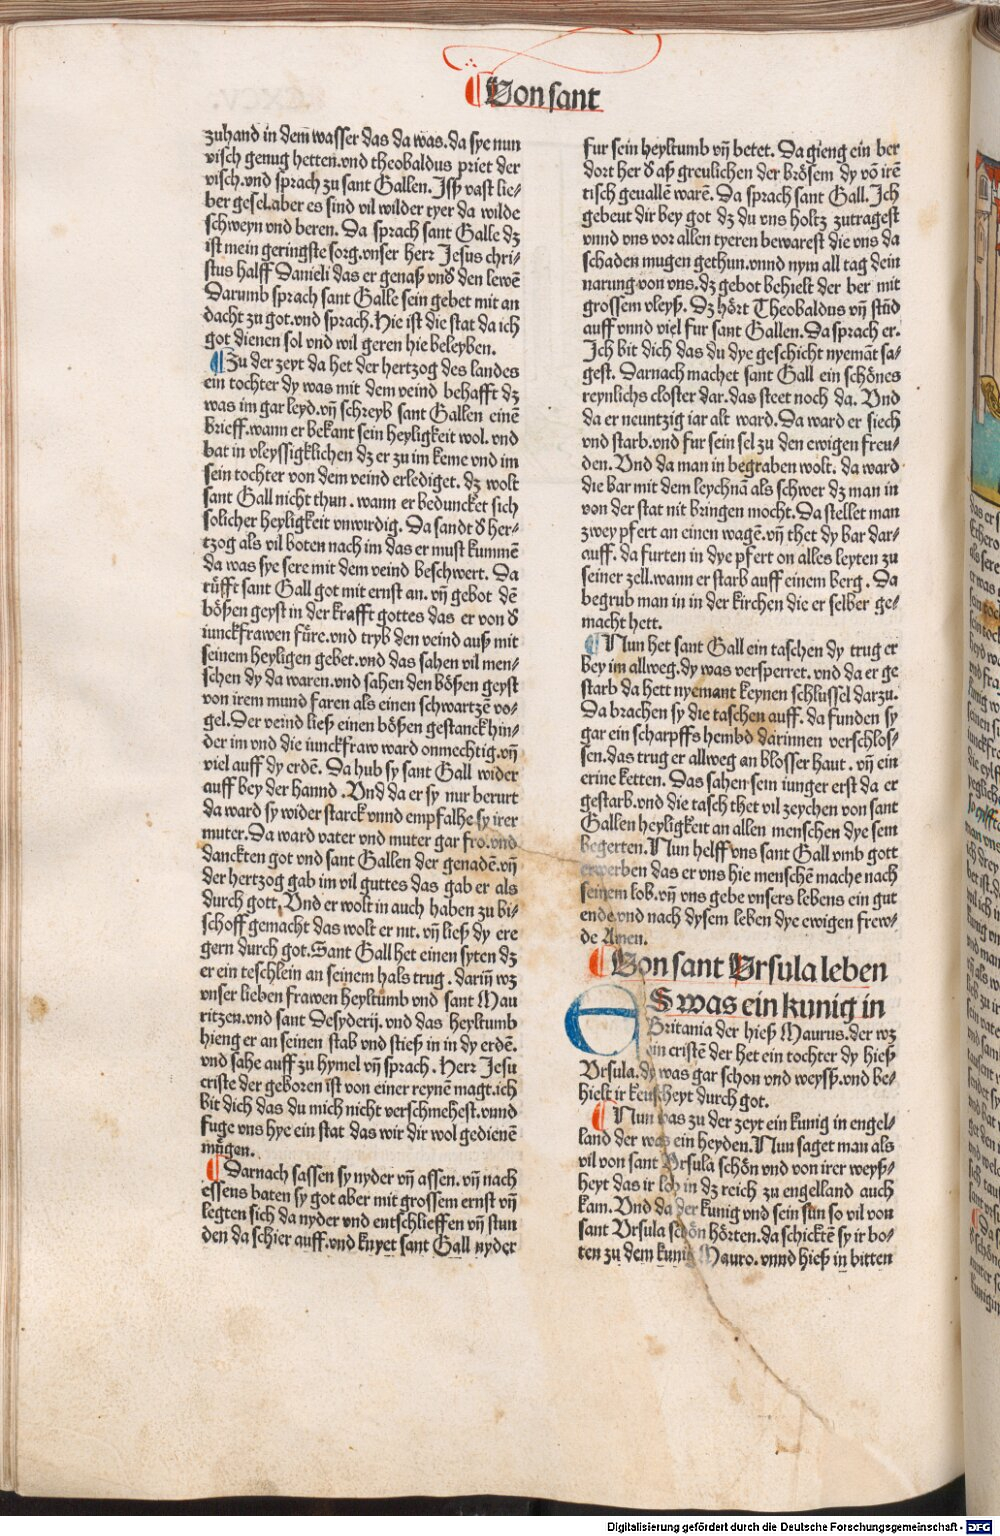 Von sant
zuhand in dem wasser das da was. da sye nun
visch genug hetten. vnd theobaldus priet der
visch. vnd sprach zu sant Gallen. Jssz vast lie-
ber gesel. aber es sind vil wilder tyer da wilde
schweyn vnd beren. Da sprach sant Galle dz
ist mein geringste sorg. vnser herr Jesus chri-
stus halff Danieli das er genaß vnd̕ den lewē
Darumb sprach sant Galle sein gebet mit an
dacht zu got. vnd sprach. Hie ist die stat da ich
got dienen sol vnd wil geren hie beleyben.
¶ Zu der zeyt da het der hertzog des landes
ein tochter dy was mit dem veind behafft dz
was im gar leyd. vñ schreyb sant Gallen einē
brieff. wann er bekant sein heyligkeit wol. vnd
bat in vleyssigklichen dz er zu im keme vnd im
sein tochter von dem veind erlediget. dz wolt
sant Gall nicht thun. wann er beduncket sich
solicher heyligkeit vnwirdig. Da sandt d̕ her-
tzog als vil boten nach im das er must kummē
da was sye sere mit dem veind beschwert. Da
rüfft sant Gall got mit ernst an. vñ gebot dē
bößen geyst in der krafft gottes das er von d̕
iunckfrawen füre. vnd tryb den veind auß mit
seinem heyligen gebet. vnd das sahen vil men-
schen dy da waren. vnd sahen den bößen geyst
von irem mund faren als einen schwartzē vo-
gel. Der veind ließ einen bößen gestanck hin-
der im vnd die iunckfraw ward onmechtig. vñ
viel auff dy erdē. Da hub sy sant Gall wider
auff bey der hannd. Vnd da er sy nur berurt
da ward sy wider starck vnnd empfalhe sy irer
muter. Da ward vater vnd muter gar fro. vnd
danckten got vnd sant Gallen der genadē. vñ
der hertzog gab im vil guttes das gab er als
durch gott. Vnd er wolt in auch haben zu bi-
schoff gemacht das wolt er nit. vñ ließ dy ere
gern durch got. Sant Gall het einen syten dz
er ein teschlein an seinem hals trug. dariñ wz
vnser lieben frawen heyltumb vnd sant Mau
ritzen. vnd sant Desyderij. vnd das heyltumb
hieng er an seinen stab vnd stieß in in dy erdē.
vnd sahe auff zu hymel vñ sprach. Herr Jesu
criste der geboren ist von einer reynē magt. ich
bit dich das du mich nicht verschmehest. vnnd
fuge vns hye ein stat das wir dir wol gedienē
mügen.
¶ Darnach sassen sy nyder vñ assen. vñ nach
essens baten sy got aber mit grossem ernst vñ
legten sich da nyder vnd entschlieffen vñ stun
den da schier auff. vnd knyet sant Gall nyder
fur sein heyltumb vñ betet. Da gieng ein ber
dort her d̕ aß greulichen der brösem dy vō irē
tisch geuallē warē. Da sprach sant Gall. Jch
gebeut dir bey got dz du vns holtz zutragest
vnnd vns vor allen tyeren bewarest die vns da
schaden mugen gethun. vnnd nym all tag dein
narung von vns. dz gebot behielt der ber mit
grossem vleyß. Dz hört Theobaldus vñ stūd
auff vnnd viel fur sant Gallen. Da sprach er.
Jch bit dich das du dye geschicht nyemāt sa-
gest. Darnach machet sant Gall ein schönes
reynlichs closter dar. das steet noch da. Vnd
da er neuntzig iar alt ward. Da ward er siech
vnd starb. vnd fur sein sel zu den ewigen freu-
den. Vnd da man in begraben wolt. da ward
die bar mit dem leychnā als schwer dz man in
von der stat nit bringen mocht. Da stellet man
zwey pfert an einen wagē. vñ thet dy bar dar-
auff. da furten in dye pfert on alles leyten zu
seiner zell. wann er starb auff einem berg. Da
begrub man in in der kirchen die er selber ge-
macht hett.
¶ Nun het sant Gall ein taschen dy trug er
bey im allweg. dy was versperret. vnd da er ge
starb da hett nyemant keynen schlussel darzu.
Da brachen sy die taschen auff. da funden sy
gar ein scharpffs hembd darinnen verschlos-
sen. das trug er allweg an blosser haut. vñ ein
erine ketten. Das sahen sein iunger erst da er
gestarb. vnd die tasch thet vil zeychen von sant
Gallen heyligkeit an allen menschen dye sein
begerten. Nun helff vns sant Gall vmb gott
erwerben das er vns hie menschē mache nach
seinem lob. vñ vns gebe vnsers lebens ein gut
ende vnd nach dysem leben dye ewigen frew-
de Amen.
¶ Von sant Vrsula leben
ES was ein kunig in
Britania der hieß Maurus. der wz
ein cristē der het ein tochter dy hieß
Vrsula. dy was gar schon vnd weyß. vnd be-
hielt ir keuscheyt durch got.
¶ Nun was zu der zeyt ein kunig in engel-
land der was ein heyden. Nun saget man als
vil von sant Vrsula schön vnd von irer weyß-
heyt das ir lob in dz reich zu engelland auch
kam. Vnd da der kunig vnd sein sun so vil von
sant Vrsula schön hörten. da schicktē sy ir bo-
ten zu dem kunig Mauro. vnnd hieß in bitten
Digitalisierung gefördert durch die Deutsche Forschungsgemeinschaft - DFG